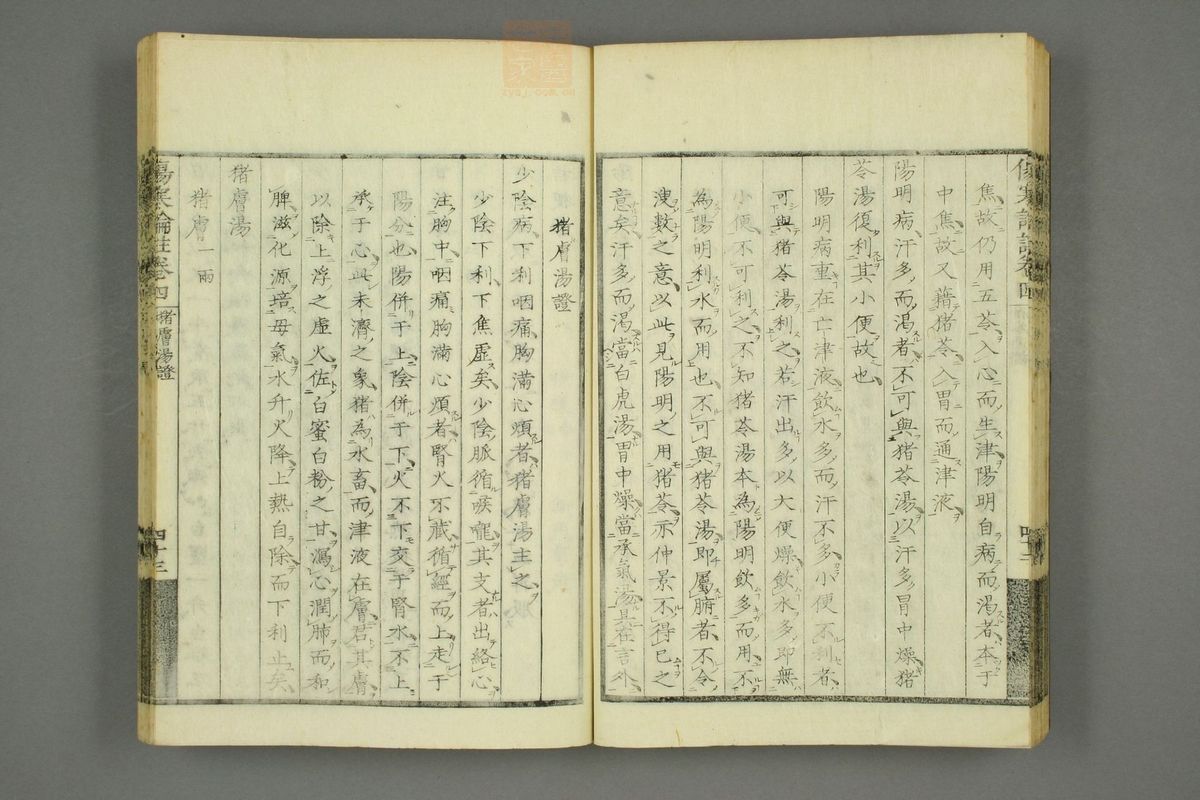 焦故仍用五苓入心而生津陽明自病而渴者本于
中焦故又藉猪苓入胃而通津液
陽明病汗多而渴者不可與猪苓湯以汗多胃中燥猪
苓湯復利其小便故也
陽明病重在亡津液飲水多而汗不多小便不利者
可與猪苓湯利之若汗出多以大便燥飲水多即無
小便不可利之不知猪苓湯本為陽明飲多而用不
為陽明利水而用也不可與猪苓湯即屬腑者不令
溲數之意以此見陽明之用猪苓亦仲景不得已之
意矣汗多而渴當白虎湯胃中燥當承氣湯具在言外
猪膚湯證
少陰病下利咽痛胸滿心煩者猪膚湯主之
少陰下利下焦虛矣少陰脈循喉嚨其支者出絡心
注胸中咽痛胸滿心煩者腎火不藏循經而上走于
陽分也陽併于上陰併于下火不下交于腎水不上
承于心此未濟之象猪為水畜而津液在膚君其膚
以除上浮之虛火佐白蜜白粉之甘瀉心潤肺而和
脾滋化源培母氣水升火降上熱自除而下利止矣
猪膚湯
猪膚一兩
傷寒論註卷四
猪膚湯證
四十三